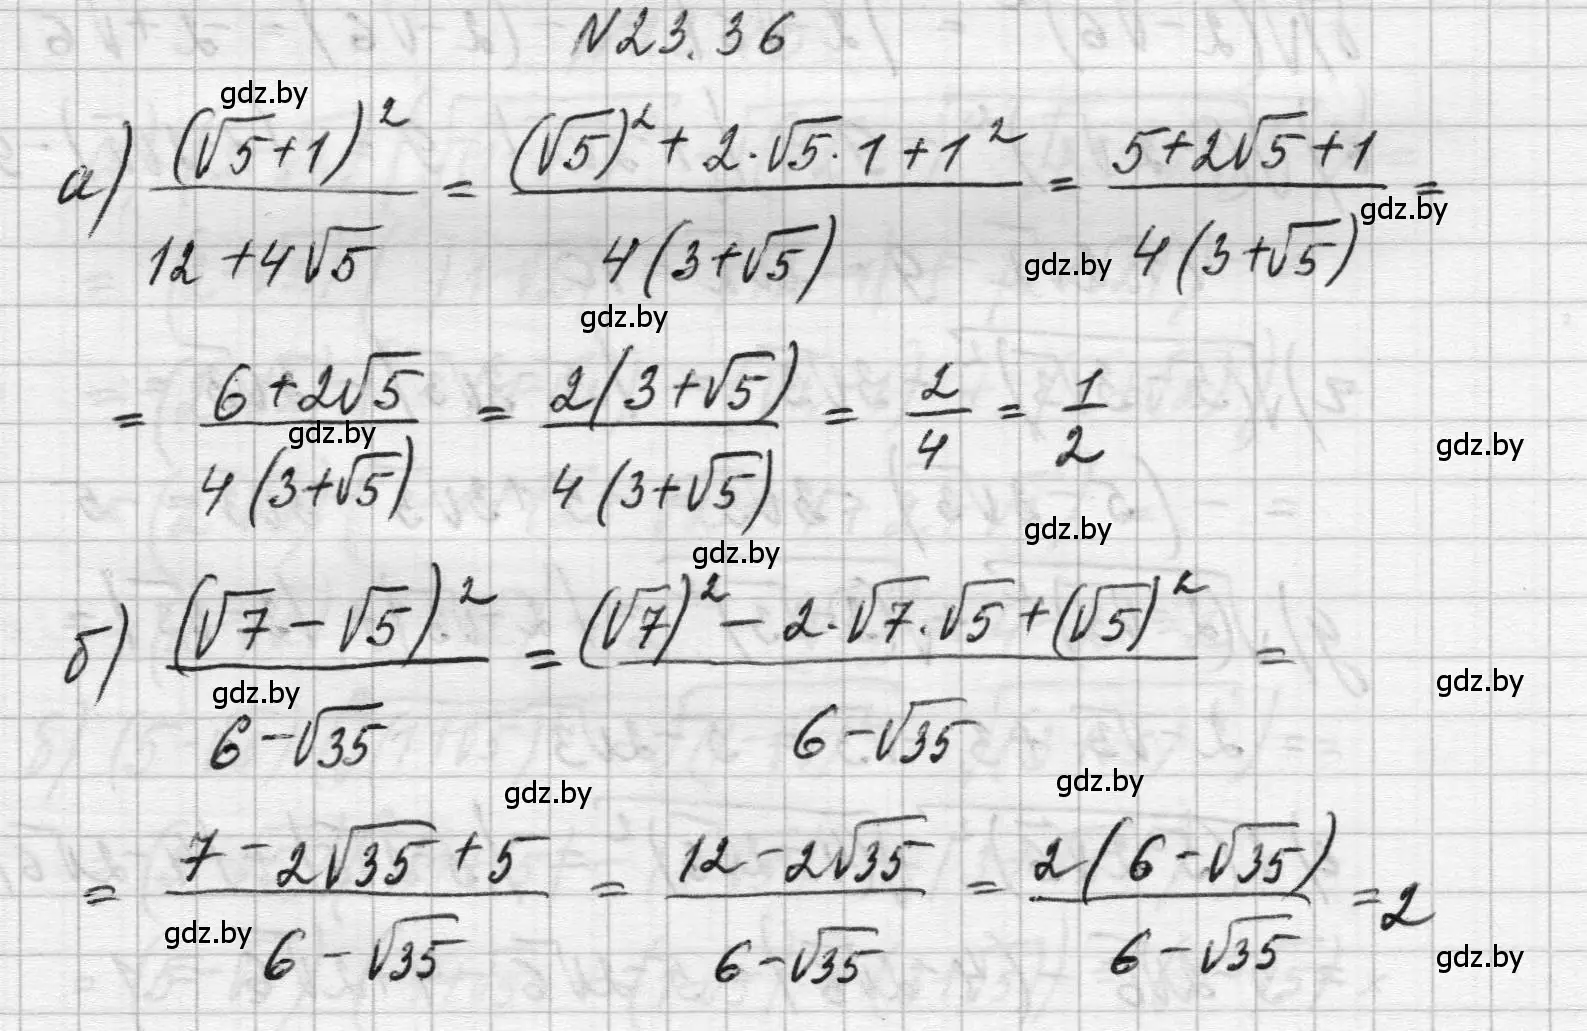 N23.36
gdz.by
а) (√5+1)² / (12+4√5) = ((√5)²+2·√5·1+1²) / (4(3+√5)) = (5+2√5+1) / (4(3+√5)) =
gdz.by
gdz.by
gdz.by
= (6+2√5) / (4(3+√5)) = (2(3+√5)) / (4(3+√5)) = 2/4 = 1/2
gdz.by
gdz.by
gdz.by
gdz.by
б) (√7-√5)² / (6-√35) = ((√7)²-2·√7·√5+(√5)²) / (6-√35) =
gdz.by
gdz.by
gdz.by
gdz.by
= (7-2√35+5) / (6-√35) = (12-2√35) / (6-√35) = (2(6-√35)) / (6-√35) = 2
gdz.by
gdz.by